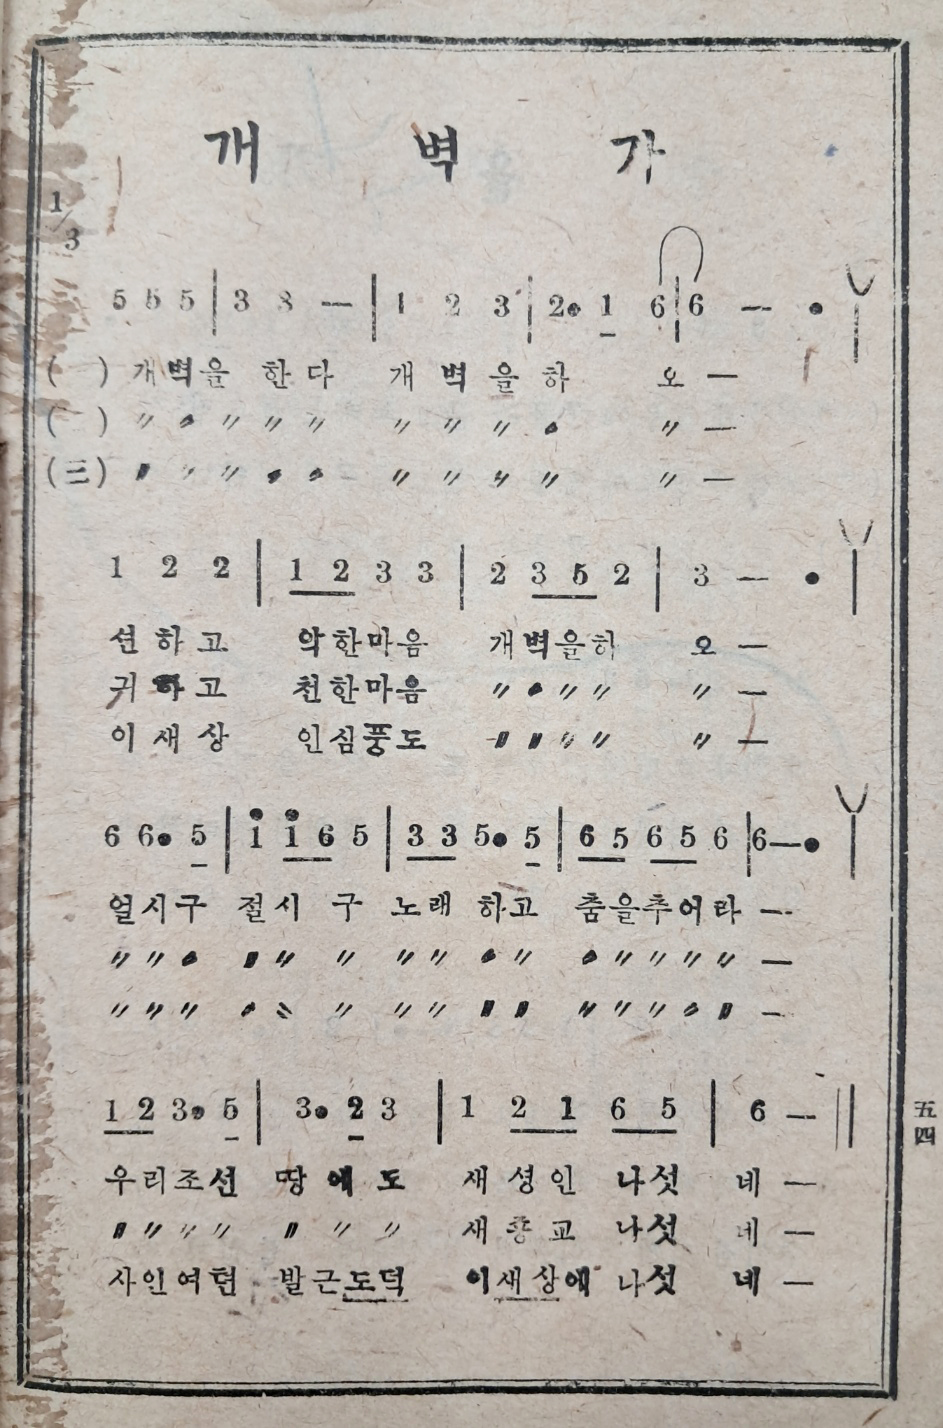 개 벽 가
1/3
5 5 5 | 3 3 — | 1 2 3 | 2• 1 6 | 6 — •
( ) 개벽을 한다 개벽을하 오 —
( ) 〃〃〃〃〃 〃〃〃〃 〃 —
(三) 〃〃〃〃〃 〃〃〃〃 〃 —
1 2 2 | 1 2 3 3 | 2 3 5 2 | 3 — •
션하고 악한마음 개벽을하 오 —
귀하고 천한마음 〃〃〃〃 〃 —
이새상 인심풍도 〃〃〃〃 〃 —
6 6• 5 | 1 1 6 5 | 3 3 5• 5 | 6 5 6 5 6 | 6 — •
얼시구 절시 구 노래 하고 춤을추어라 —
〃〃〃 〃〃 〃 〃〃 〃〃 〃〃〃〃〃 —
〃〃〃 〃〃 〃 〃〃 〃〃 〃〃〃〃〃 —
1 2 3• 5 | 3• 2 3 | 1 2 1 6 5 | 6 — ||
우리조선 땅에도 새성인 나섯 네 —
〃〃〃〃 〃〃〃 새종교 나섯 네 —
사인여현 발근도덕 이새상에 나섯 네 —
五四